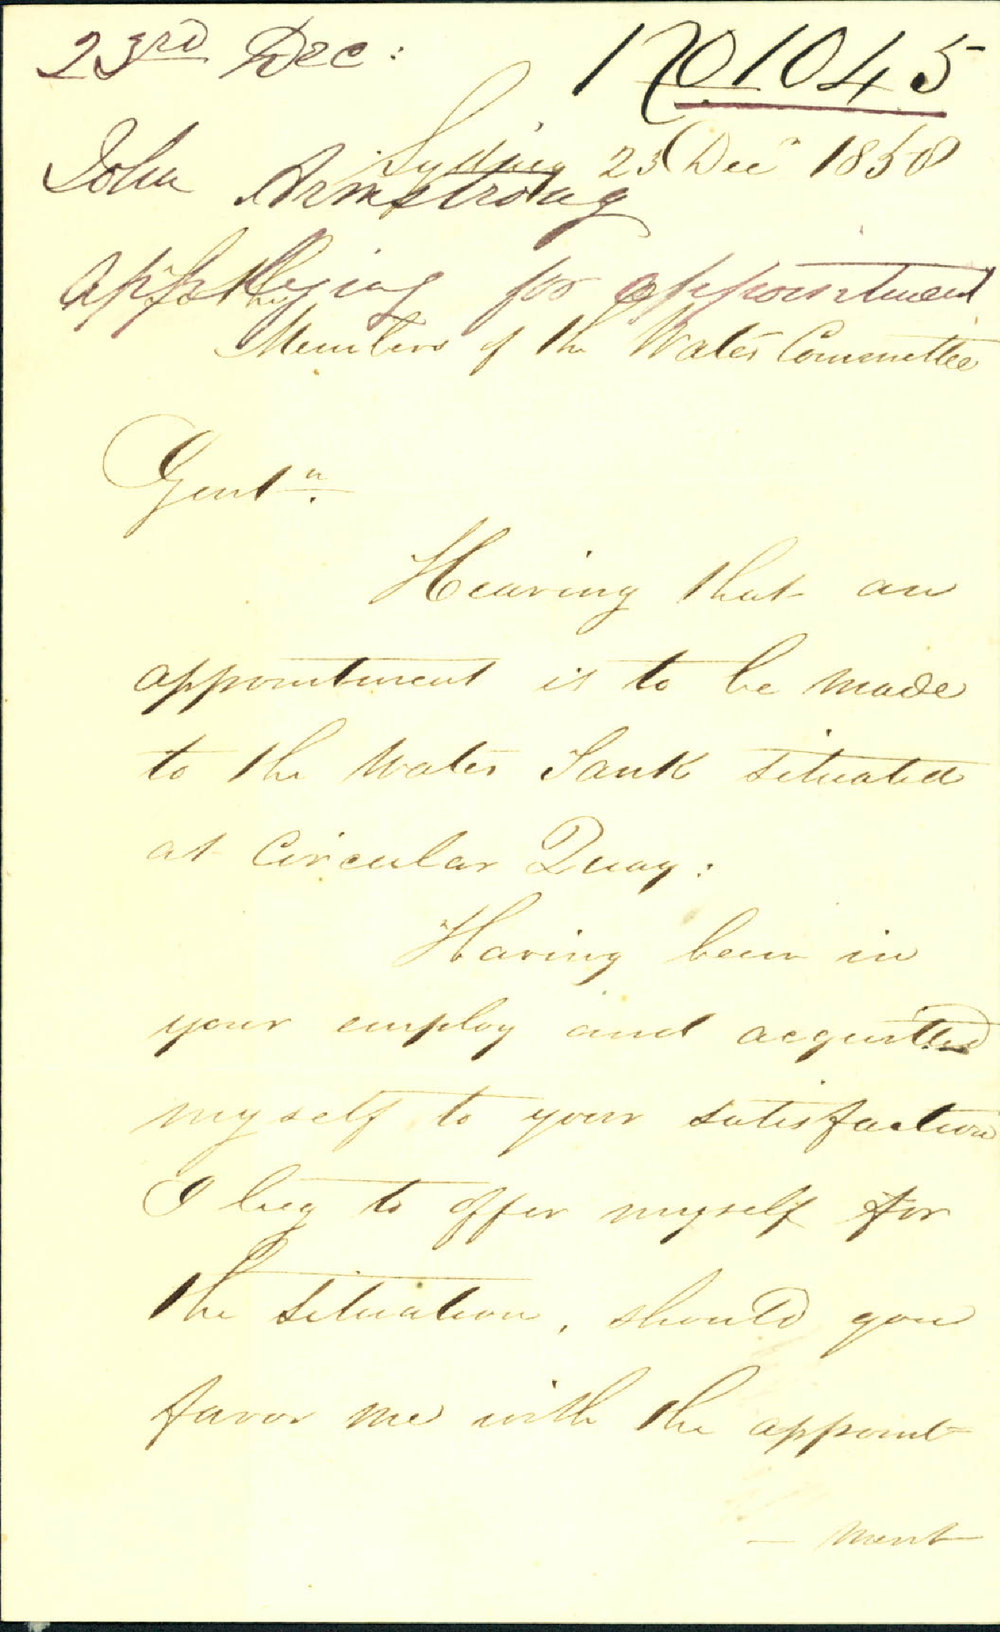 23rd Dec:
No 1045
Sydney 23 Decr 1858
John Armstrong
applying for appointment
To the
Members of the Water Committee
Gentn.
Hearing that an
appointment is to be made
to the Water Tank situated
at Circular Quay:
Having been in
your employ and acquitted
myself to your satisfaction
I beg to offer myself for
the situation, should you
favor me with the appoint
- ment